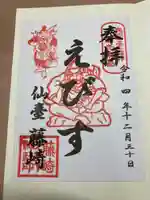 奉拝
令和四年十二月三十日
えびす
仙臺 藤崎
藤崎